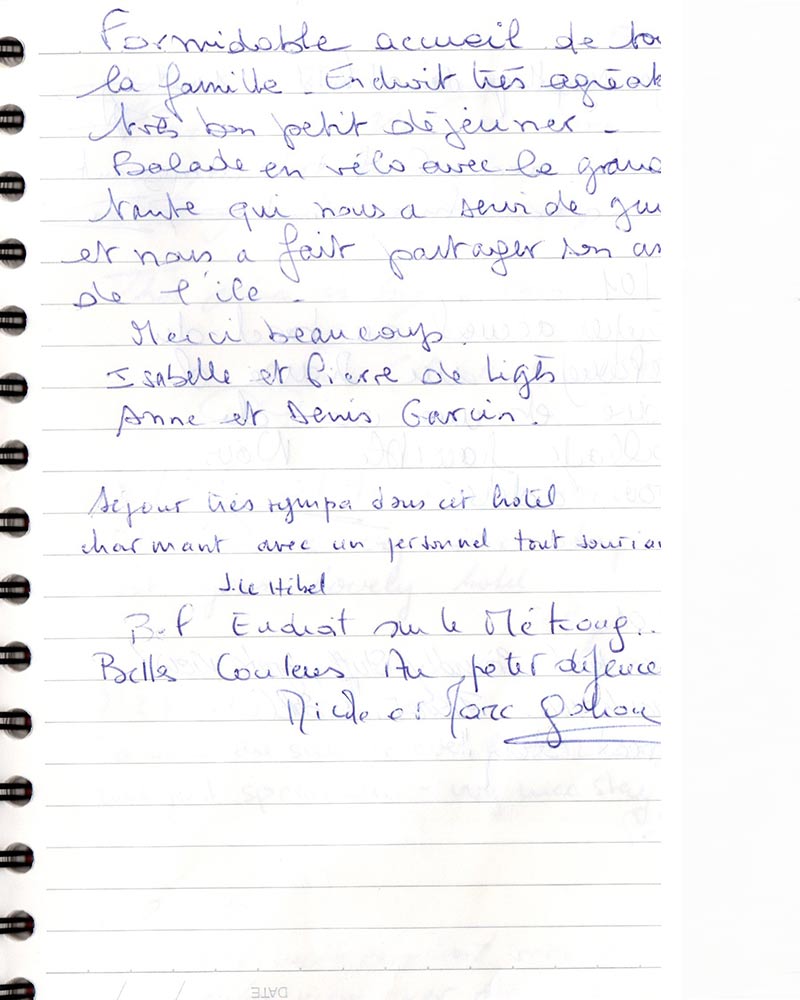 Formidable accueil de to
la famille. Endroit très agréab
très bon petit déjeuner -
Balade en vélo avec la grand
tante qui nous a servi de gui
et nous a fait partager son am
de l'île.
Merci beaucoup.
Isabelle et Pierre de
Anne et Denis Garcin.
Séjour très sympa dans cet hôtel
charmant avec un personnel tout souria
J. Le Hibel
Endroit sur le Mékong..
Belles Couleurs Au petit
Nicole et Marc
DATE